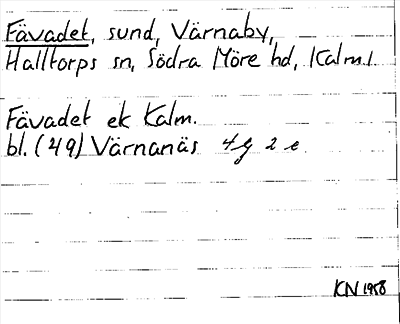 Fävadet, sund, Värnaby,
Halltorps sn, Södra Möre hd, Kalm.l.
Fävadet ek Kalm.
bl. (49) Värnanäs 4g 2 e
KN 1958